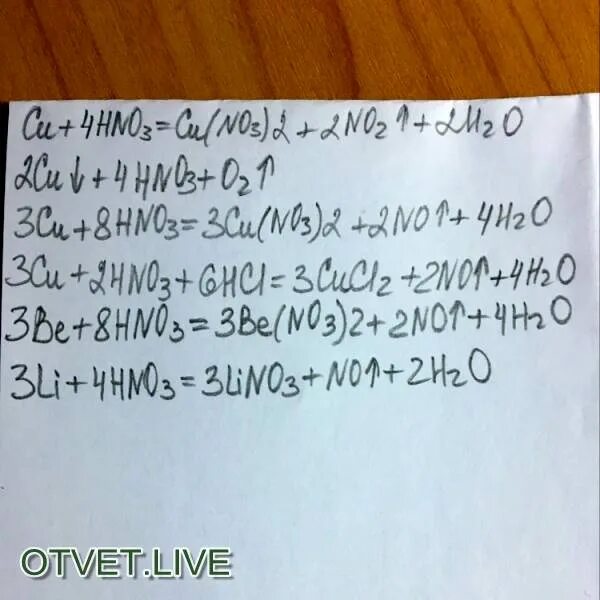 Cu + 4HNO3 = Cu(NO3)2 + 2NO2↑ + 2H2O
2Cu↓ + 4HNO3 + O2↑
3Cu + 8HNO3 = 3Cu(NO3)2 + 2NO↑ + 4H2O
3Cu + 2HNO3 + 6HCl = 3CuCl2 + 2NO↑ + 4H2O
3Be + 8HNO3 = 3Be(NO3)2 + 2NO↑ + 4H2O
3Li + 4HNO3 = 3LiNO3 + NO↑ + 2H2O
OTVET.LIVE